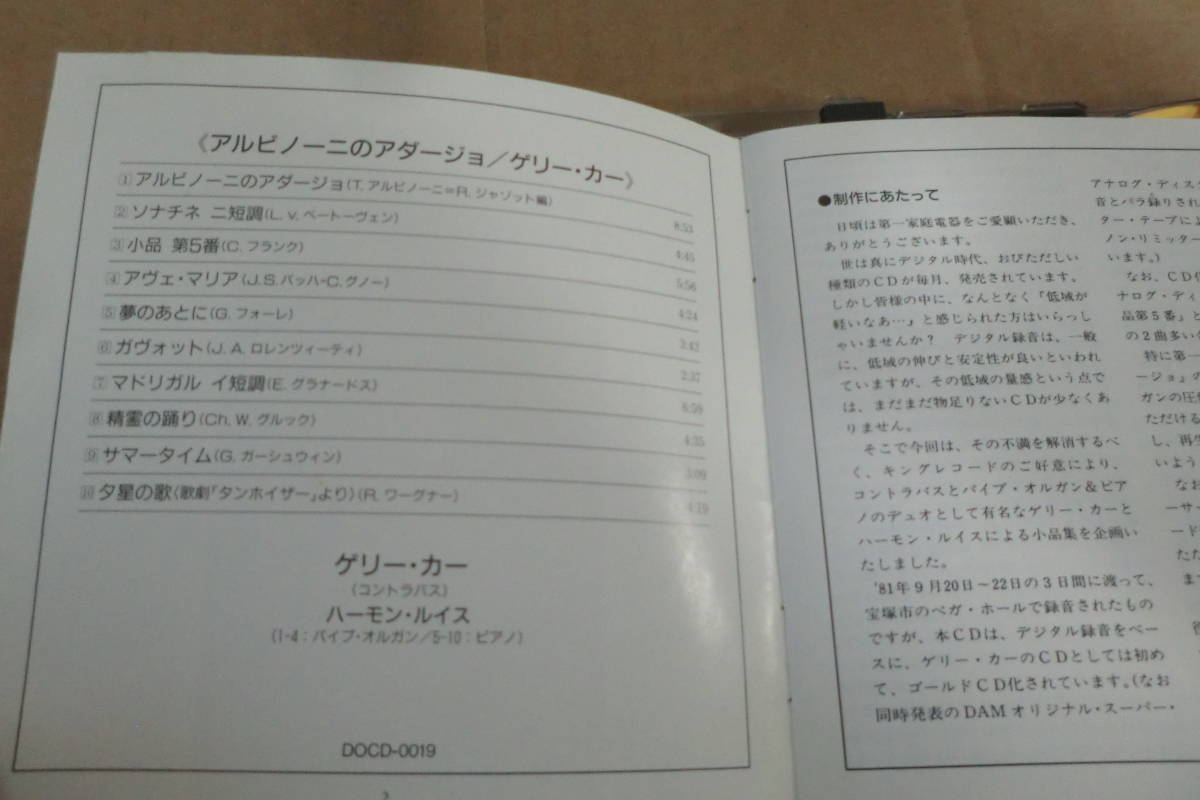 《アルビノーニのアダージョ／ゲリー・カー》
1 アルビノーニのアダージョ(T. アルビノーニ=R. ジャゾット編) 8:53
2 ソナチネ ニ短調(L. v. ベートーヴェン) 4:45
3 小品 第5番(C. フランク) 5:56
4 アヴェ・マリア(J.S.バッハ-C. グノー) 4:24
5 夢のあとに(G. フォーレ) 3:42
6 ガヴォット(J. A. ロレンツィーティ) 2:37
7 マドリガル イ短調(E. グラナードス) 6:59
8 精霊の踊り(Ch. W. グルック) 4:35
9 サマータイム(G. ガーシュウィン) 3:09
10 夕星の歌(歌劇「タンホイザー」より)(R. ワーグナー) 4:19
ゲリー・カー
(コントラバス)
ハーモン・ルイス
(1-4：パイプ・オルガン／5-10：ピアノ)
DOCD-0019
2
●制作にあたって
日頃は第一家庭電器をご愛顧いただき、
ありがとうございます。
世は真にデジタル時代、おびただしい
種類のCDが毎月、発売されています。
しかし皆様の中に、なんとなく「低域が
軽いなあ…」と感じられた方はいらっし
ゃいませんか？ デジタル録音は、一般
に、低域の伸びと安定性が良いといわれ
ていますが、その低域の量感という点で
は、まだまだ物足りないCDが少なくあ
りません。
そこで今回は、その不満を解消するべ
く、キングレコードのご好意により、
コントラバスとパイプ・オルガン&ピア
ノのデュオとして有名なゲリー・カーと
ハーモン・ルイスによる小品集を企画い
たしました。
'81年9月20日～22日の3日間に渡って、
宝塚市のベガ・ホールで録音されたもの
ですが、本CDは、デジタル録音をベー
スに、ゲリー・カーのCDとしては初め
て、ゴールドCD化されています。(なお
同時発表のDAMオリジナル・スーパー・
アナログ・ディス
音とパラ録りされ
ター・テープによ
ノン・リミッター
います。)
なお、CD化
ナログ・ディ
品第5番」と
の2曲多い
特に第一
ージョ」の
ガンの圧
ただける
し、再生
いよう
なお
ーサー
ード
ただ
ま